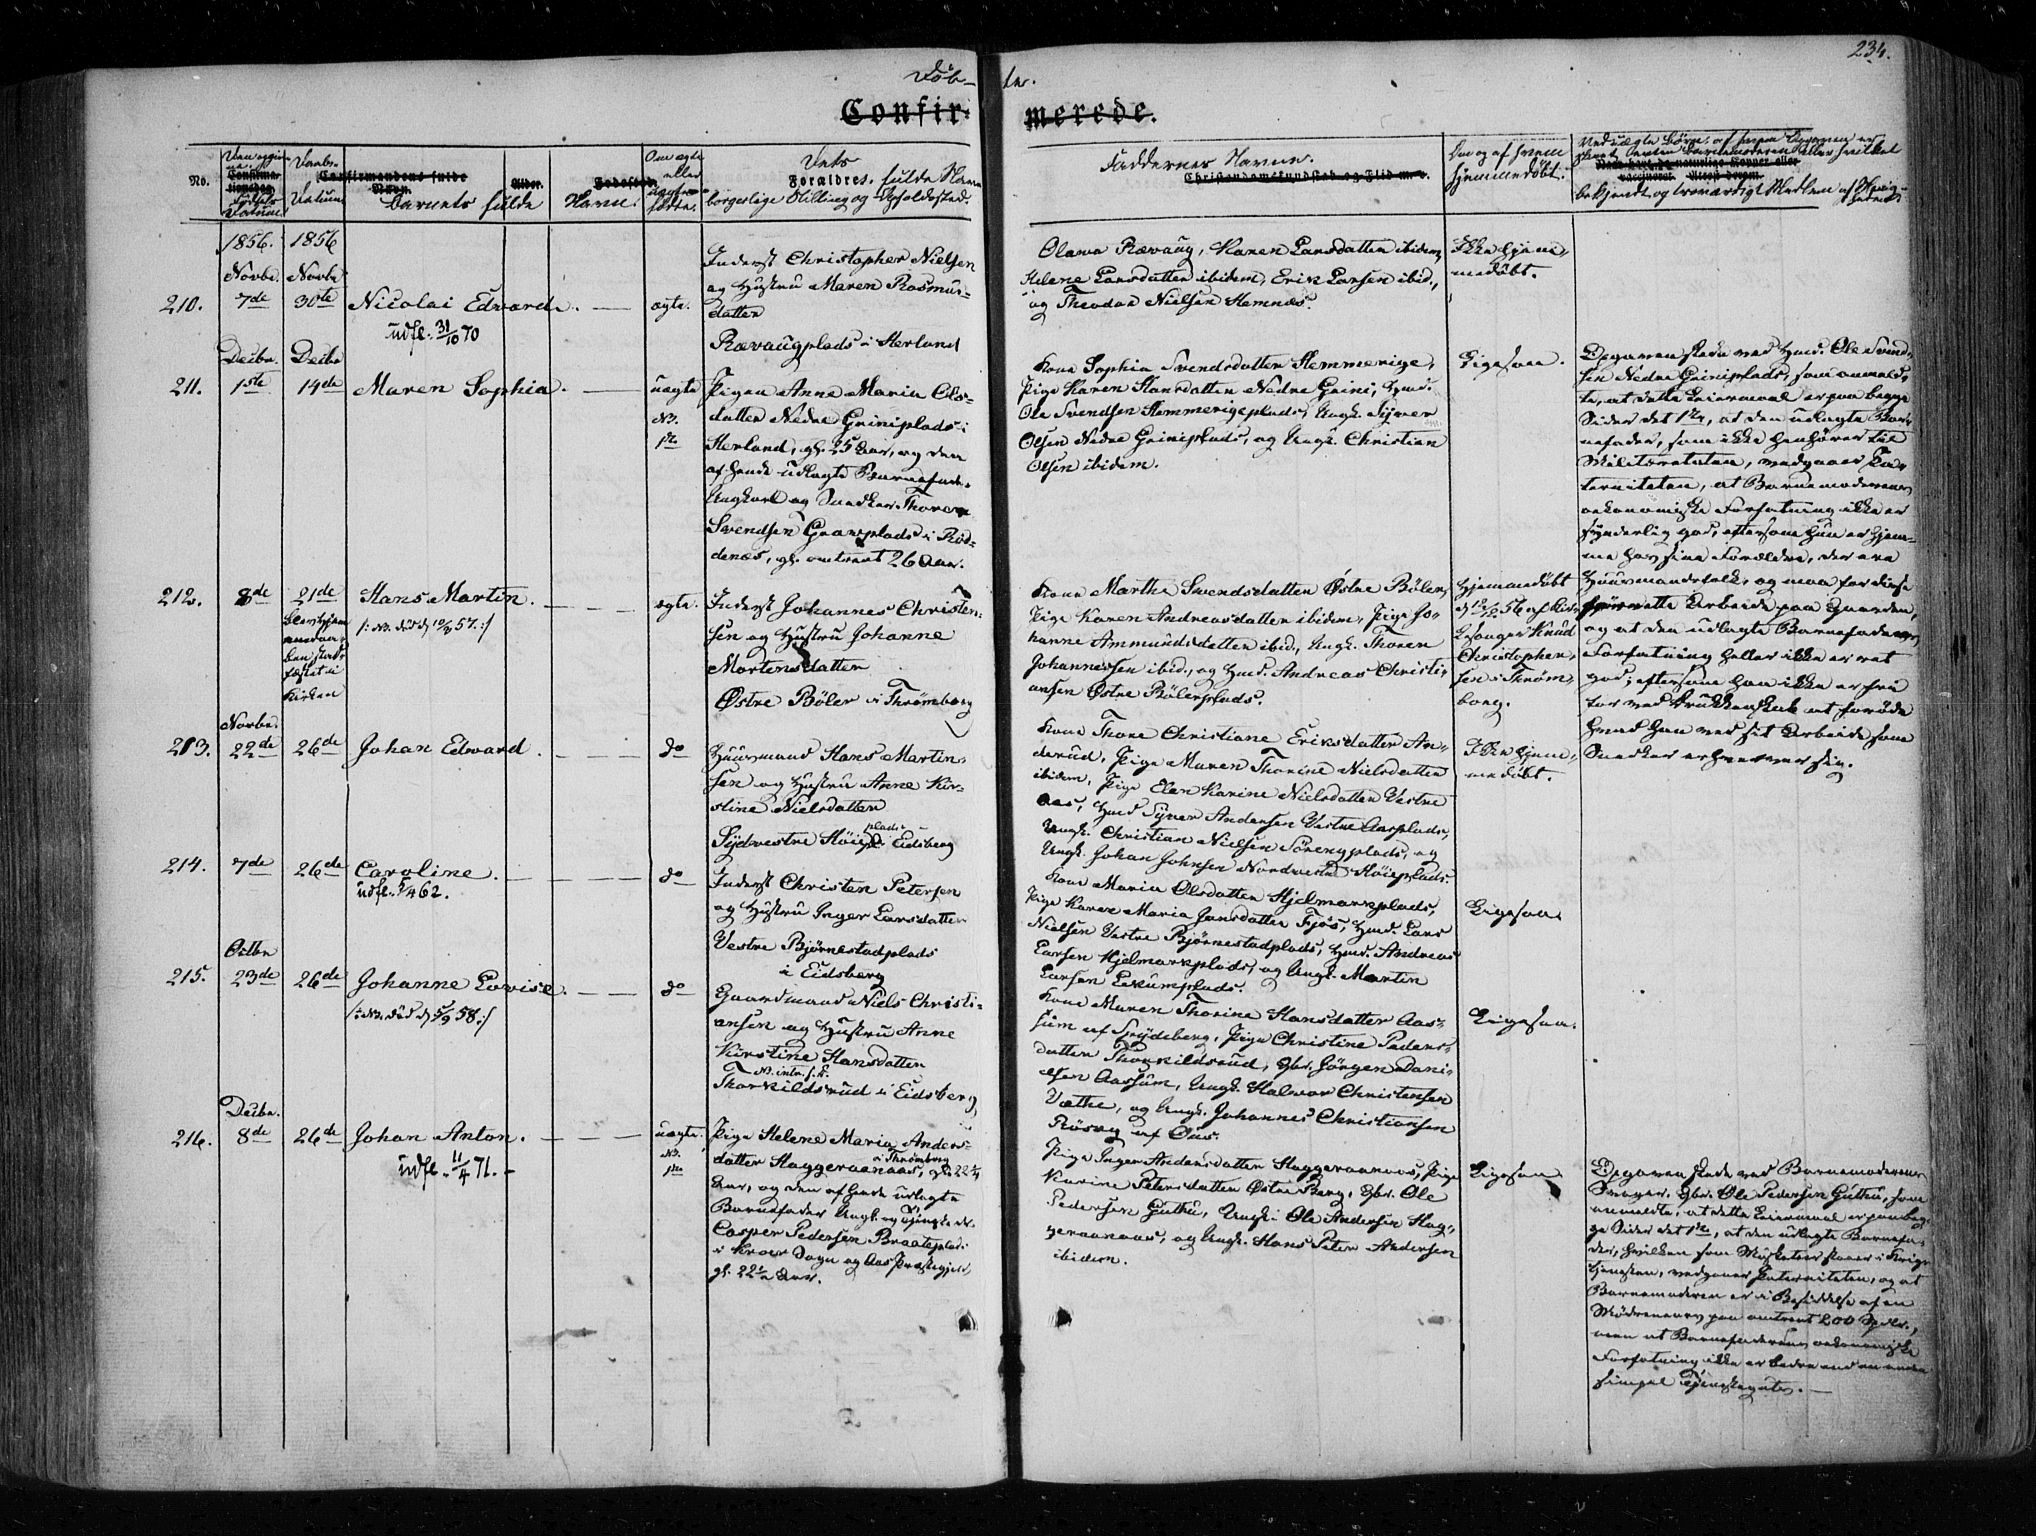 234.
Døb-
te.
Confir-
merede.
No.
Døbs-
Datum
Confirmandens fulde
Navn.
Alder.
Barnets fulde
Navn.
Fødested
Om ægte
eller
uægte
Dets
Forældres fulde Navn
borgerlige Stilling og Opholdssted.
Faddernes Navne.
Christendomskundskab og Flid m. v.
Om og af hvem
hjemmedøbt.
1856. 1856
Novbr. Novbr
210. 7de 30te Nicolai Edvard. ægte.
udfl. 31/10 70
Inderst Christopher Nielsen
og Hustru Maren Rasmus-
datter
Rævaugplads i Herland
Olava Rævaug, Maren Larsdatter ibidem,
Helene Larsdatter ibidem, Erik Larsen ibid.,
og Theodor Nielsen Hemnæs.
Ikke hjem-
medøbt.
Decbr. Decbr
211. 1ste 14de Maren Sophia. uægte
NB.
1ste
Pigen Anne Maria Ols-
datter Nedre Griniplads i
Herland, gl. 25 Aar, og den
af hende udlagte Barnefader
Ungkarl og Snedker Thoren
Svendsen Graneplads i Rød-
denæs, gl. omtrent 26 Aar.
Kone Sophia Svendsdatter Hemmerige,
Pige Karen Hansdatter Nedre Grini, Husm.
Ole Svendsen Hemmerigeplads, Ungk. Syver
Olsen Nedre Griniplads, og Ungk. Christian
Olsen ibidem.
Ligesaa.
Opgaven skede ved Husm. Ole Svend-
sen Nedre Griniplads, som anmeld-
te, at dette Leiermaal er paa begge
Sider det 1ste, at den udlagte Bar-
nefader, som ikke henhører til
Militæretaten, vedgaaer Pa-
terniteten, at Barnemoderens
oekonomiske Forfatning ikke er
synderlig god, eftersom hun er hjem-
me hos sine Forældre, der ere
Huusmandsfolk, og maa for disse
forrette Arbeide paa Gaarden,
og at den udlagte Barnefaders
Forfatning heller ikke er ret
god; eftersom han ikke er fri
for ved Drukkenskab at forøde
hvad han ved sit Arbeide som
Snedker erhverver sig.
212. 8de 21de Hans Martin. ægte.
/: NB. død d. 12/2 57. :/
Inderst Johannes Christen-
sen og Hustru Johanne
Mortensdatter
Østre Bøler i Thrømborg
Kone Marthe Svendsdatter Østre Bøler,
Pige Karen Andreasdatter ibidem, Pige Jo-
hanne Ammundsdatter ibid., Ungk. Thoren
Johannessen ibid., og Husm. Andreas Christi-
ansen Østre Bølerplads.
Hjemmedøbt
d. 12/12 56 af Kirke-
sanger Knud
Christophen-
sen i Thrøm-
borg.
Novbr.
213. 22de 26de Johan Edvard. do
Huusmand Hans Martin-
sen og Hustru Anne Kir-
stine Nielsdatter
Sydvestre Høieplads i Eidsberg
Kone Thone Christiane Eriksdatter An-
derud, Pige Maren Thorine Nielsdatter
ibidem, Pige Elen Karine Nielsdatter Vestre
Aas, Husmd. Syver Andersen Vestre Aasplads,
Ungk. Christian Nielsen Sørengplads, og
Ungk. Johan Johnsen Nordvestre Høieplads.
Ikke hjem-
medøbt.
214. 7de 26de Caroline. do
udfl. 1/4 62.
Inderst Christen Petersen
og Hustru Inger Larsdatter
Vestre Bjørnestadplads
i Eidsberg
Kone Maria Olsdatter Hjelmarkplads,
Pige Karen Maria Jansdatter Fjøs, Husm. Lars
Nielsen Vestre Bjørnestadplads, Husm. Andreas
Larsen Hjelmarkplads, og Ungk. Martin
Larsen Lekumplads.
Ligesaa.
Octbr
215. 23de 26de Johanne Lovise. do
/: NB. død d. 5/9 58. :/
Gaardmand Niels Christi-
ansen og Hustru Anne
Kirstine Hansdatter
Thorkildsrud i Eidsberg
Kone Maren Thorine Hansdatter Aas-
sum af Spydeberg, Pige Christine Peders-
datter Thorkildsrud, Gbr. Jørgen Dani-
elsen Aassum, Ungk. Halvor Christensen
Væthe, og Ungk. Johannes Christiansen
Ligesaa.
Decbr.
216. 8de 26de Johan Anton. uægte.
NB.
1ste
udfl. 11/4 71.
Pige Helene Maria Anders-
i Thrømborg
datter Haggeraanaas, gl. 22 1/2
Aar, og den af hende udlagte
Barnefader Ungk. og Tjenestedr.
Casper Pedersen Braateplads
i Kroer Sogn og Aas Præstegjeld,
gl. 22 1/2 Aar.
Pige Inger Andersdatter Haggeraanaas, Pige
Karine Petersdatter Østre Berg, Gbr. Ole
Pedersen Guthu, Ungk. Ole Andersen Hag-
geraanaas, og Ungk. Hans Peter Andersen
ibidem.
Ligesaa
Opgaven skede ved Barnemoderens
Svoger, Gbr. Ole Pedersen Guthu, som
anmeldte, at dette Leiermaal er paa beg-
ge Sider det 1ste, at den udlagte Barnefa-
der, hvilken som Musketeer staaer i Krigs-
tjenesten, vedgaaer Paterniteten, og at
Barnemoderen er i Besiddelse af en
Mødrenearv paa omtrent 200 Spdlr.,
men at Barnefaderens oekonomiske
Forfatning ikke er bedre end en anden
simpel Tjenestegut. —